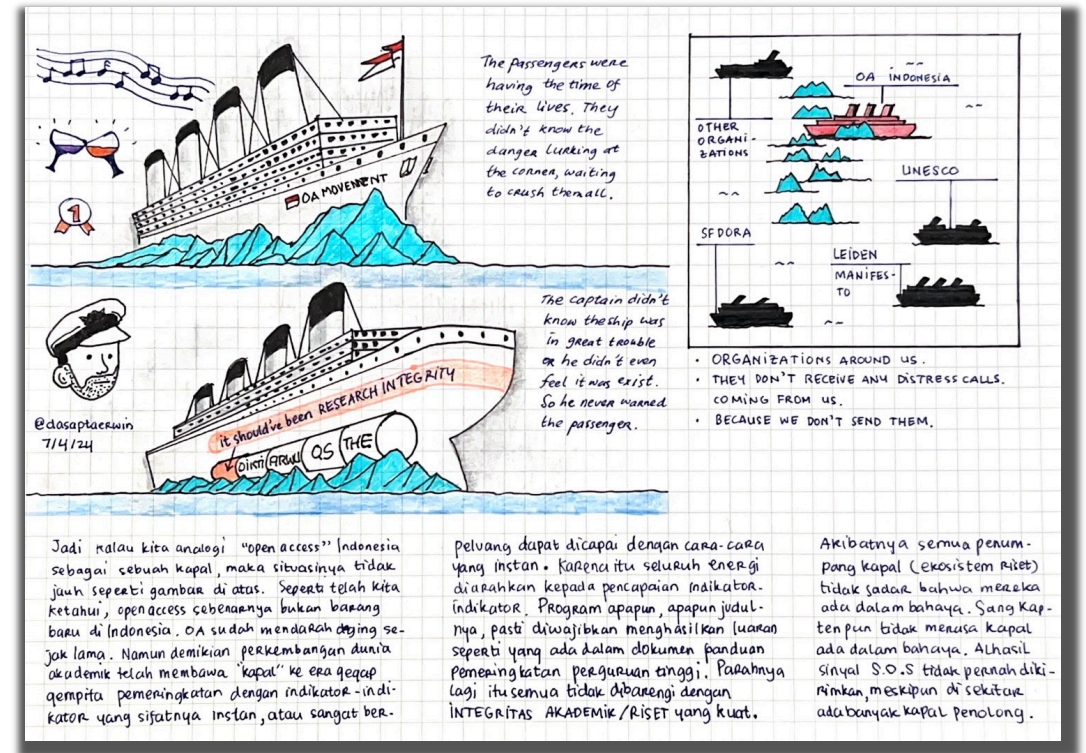 1
OA MOVEMENT
The passengers were
having the time of
their lives. They
didn't know the
danger lurking at
the corner, waiting
to crush them all.
OA INDONESIA
OTHER
ORGANI-
ZATIONS
UNESCO
SFDORA
LEIDEN
MANIFES-
TO
• ORGANIZATIONS AROUND US.
• THEY DON'T RECEIVE ANY DISTRESS CALLS.
COMING FROM US.
• BECAUSE WE DON'T SEND THEM.
@dasaptaerwin
7/4/24
it should've been RESEARCH INTEGRITY
DIKTI ARWU QS THE
The captain didn't
know the ship was
in great trouble
or he didn't even
feel it was exist.
So he never warned
the passenger.
Jadi kalau kita analogi "open access" Indonesia
sebagai sebuah kapal, maka situasinya tidak
jauh seperti gambar di atas. Seperti telah kita
ketahui, open access sebenarnya bukan barang
baru di Indonesia. OA sudah mendarah daging se-
jak lama. Namun demikian perkembangan dunia
akademik telah membawa "kapal" ke era gegap
gempita pemeringkatan dengan indikator-indi-
kator yang sifatnya instan, atau sangat ber-
peluang dapat dicapai dengan cara-cara
yang instan. Karena itu seluruh energi
diarahkan kepada pencapaian indikator-
indikator. Program apapun, apapun judul-
nya, pasti diwajibkan menghasilkan luaran
seperti yang ada dalam dokumen panduan
pemeringkatan perguruan tinggi. Parahnya
lagi itu semua tidak dibarengi dengan
INTEGRITAS AKADEMIK/RISET yang kuat.
Akibatnya semua penum-
pang kapal (ekosistem riset)
tidak sadar bahwa mereka
ada dalam bahaya. Sang kap-
ten pun tidak merasa kapal
ada dalam bahaya. Alhasil
sinyal S.O.S tidak pernah diki-
rimkan, meskipun di sekitar
ada banyak kapal penolong.